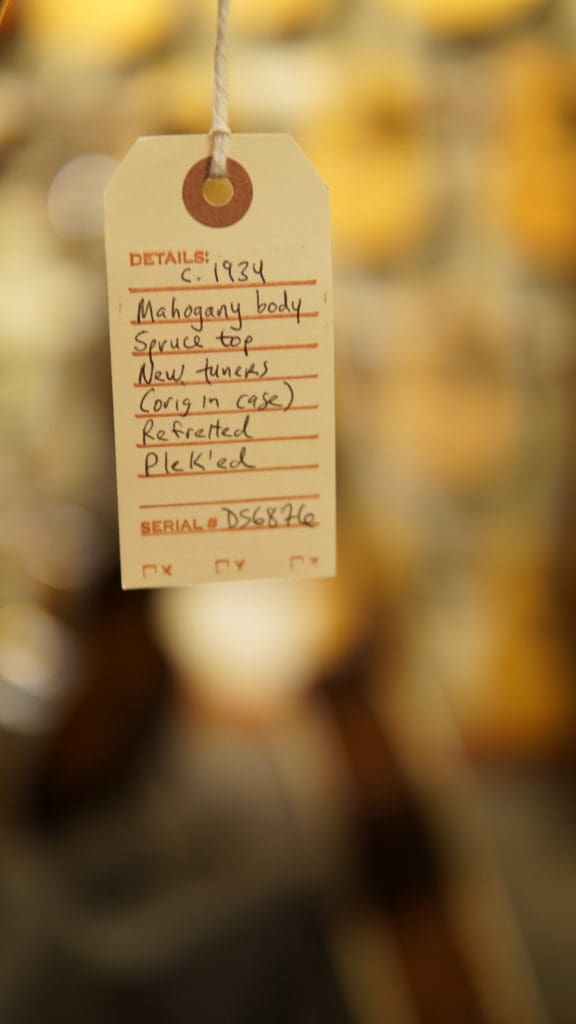 DETAILS:
c. 1934
Mahogany body
Spruce top
New tuners
(orig in case)
Refretted
PleK'ed
SERIAL # DS6876
X Y